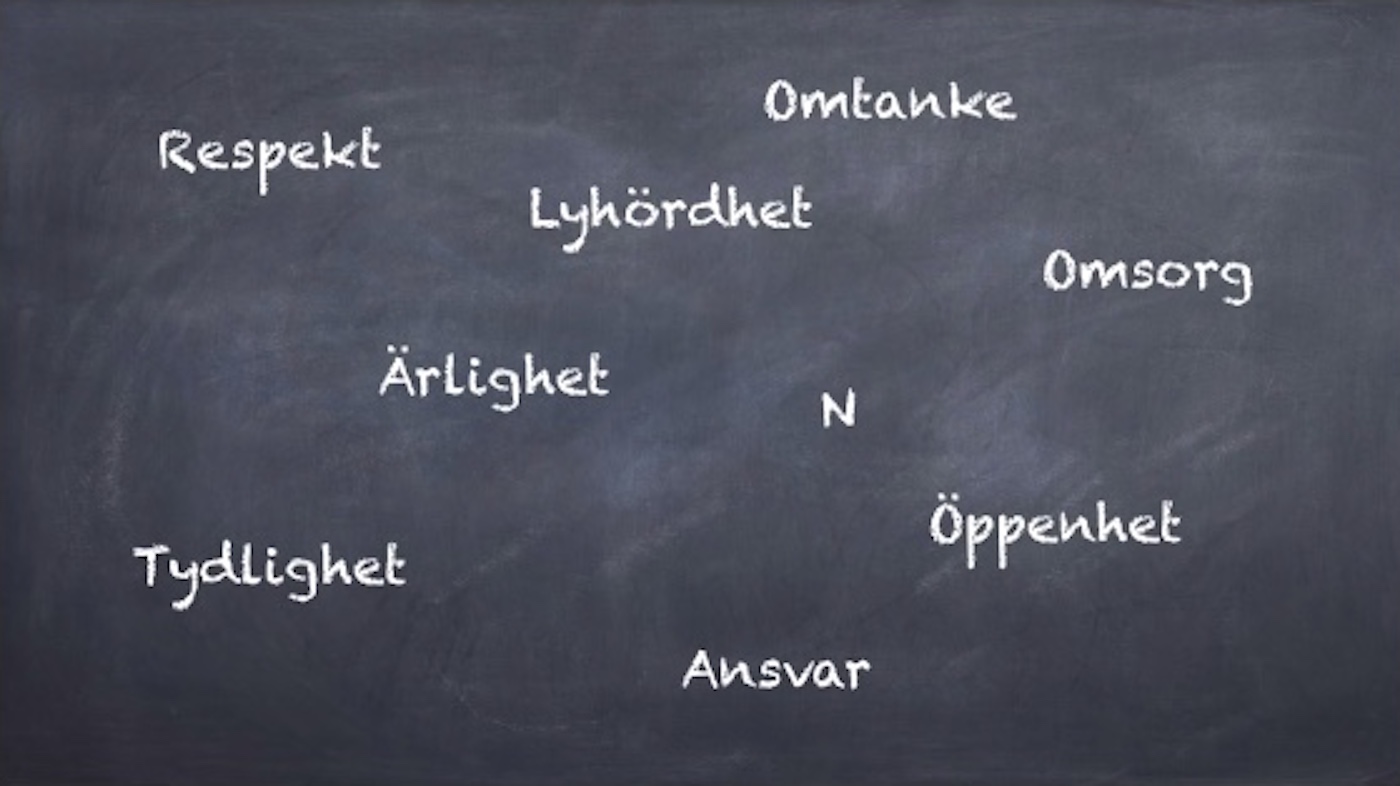 Omtanke
Respekt
Lyhördhet
Omsorg
Ärlighet
N
Öppenhet
Tydlighet
Ansvar